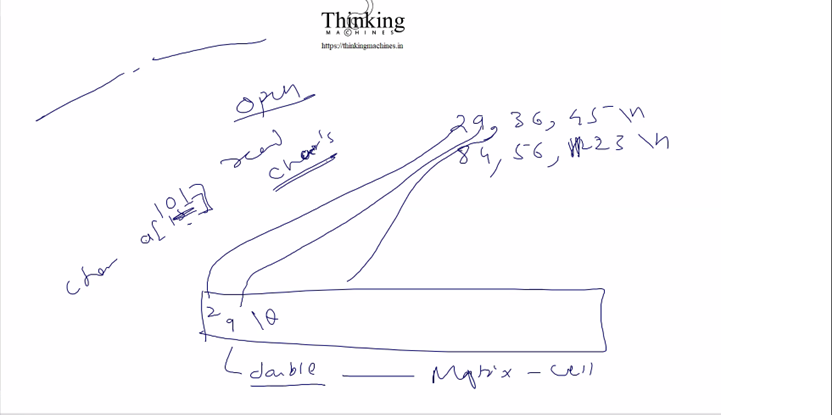 Thinking
MACHINES
https://thinkingmachines.in
open
read
char's
29, 36, 45 \n
84, 56, 223 \n
char a[101]
2 9 \0
double — Matrix - Cell